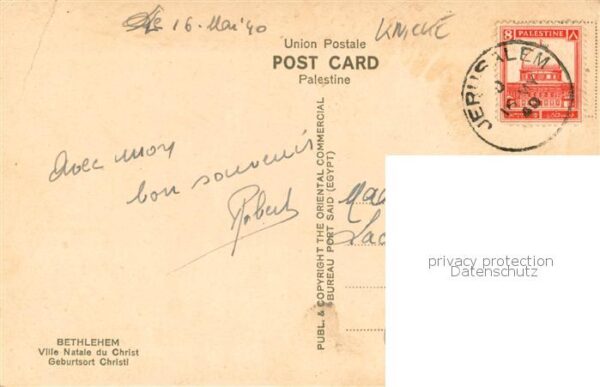 16. Mai 40
KNICKE
Union Postale
POST CARD
Palestine
8 PALESTINE ٨
JERUSALEM
40
PUBL. & COPYRIGHT THE ORIENTAL COMMERCIAL
BUREAU PORT SAID (EGYPT)
avec mon
bon souvenir
Robert
privacy protection
Datenschutz
BETHLEHEM
Ville Natale du Christ
Geburtsort Christi